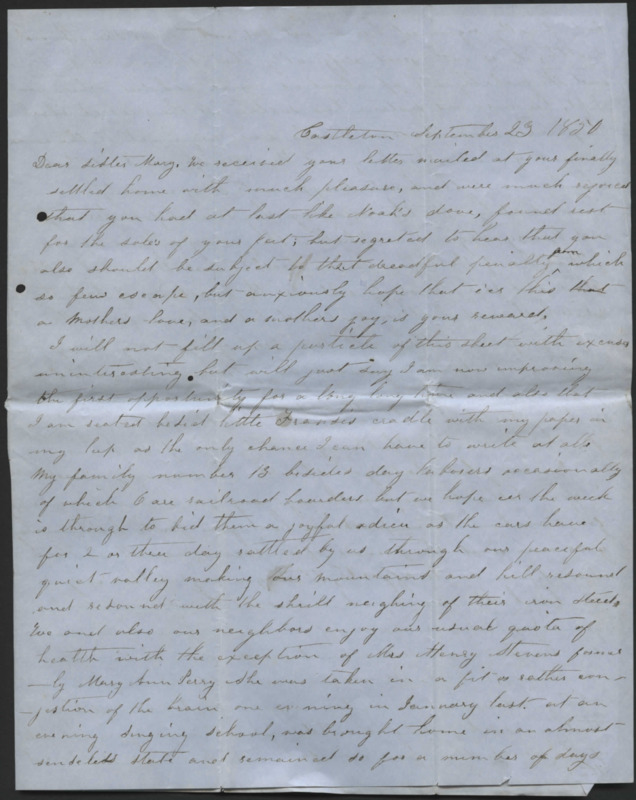 Castleton September 23 1850
Dear sister Mary. We received your letter mailed at your finally
settled home with much pleasure, and were much rejoiced
that you had at last like Noah's dove, found rest
for the soles of your feet; but regreted to hear that you
also should be subject to that dreadful penalty, which
so few escape, but anxiously hope that ier this
a Mothers love, and a mothers joy, is your reward.
I will not fill up a particle of this sheet with excuses
uninteresting but will just say I am now improving
the first opportunity for a long long time and also that
I am seated beside little Frandis cradle with my paper in
my lap as the only chance I can have to write at all
My family number 13 besides day laborers occasionally
of which 6 are railroad boarders but we hope ier the week
is through to bid them a joyful adieu as the cars have
for 2 or three day rattled by us through our peaceful
quiet valley making our mountains and hill resound
and resound with the shrill neighing of their iron steeds
We and also our neighbors enjoy our usual quota of
health with the exception of Mrs Henry Stevens former
-ly Mary Ann Perry she was taken in a fit or rather con-
-jestion of the brain one evening in January last at an
evening singing school, was brought home in an almost
senseless state and remained so for a number of days